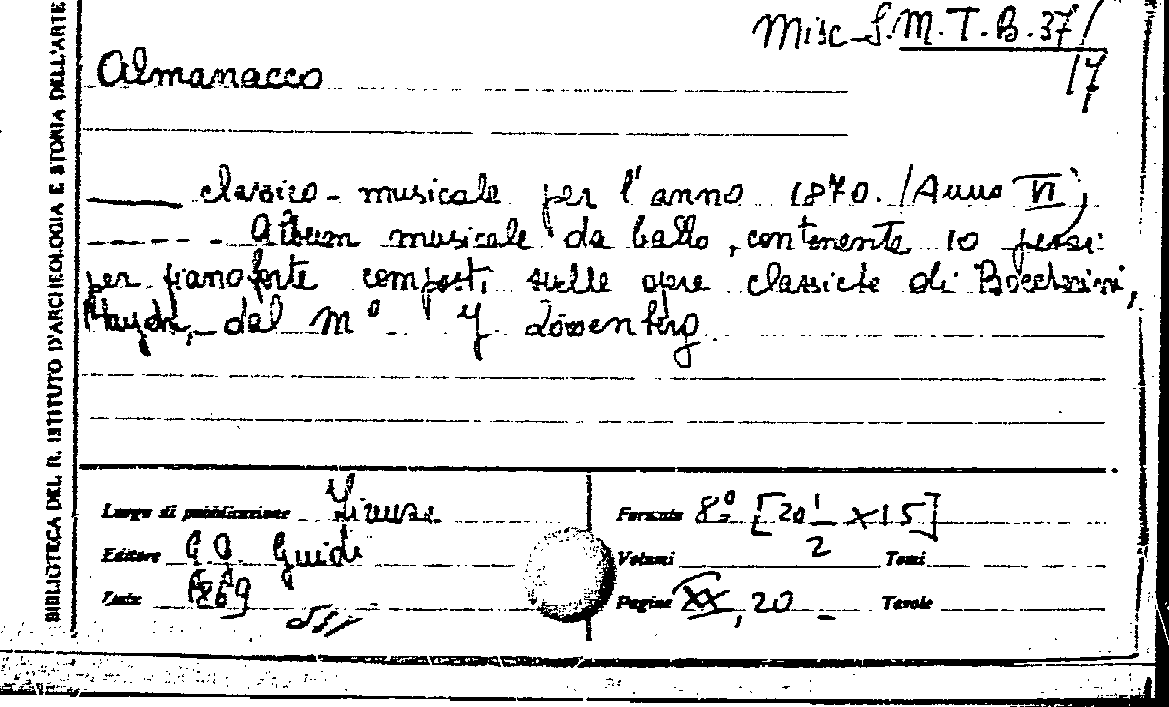 BIBLIOTECA DEL R. ISTITUTO D'ARCHEOLOGIA E STORIA DELL'ARTE
Misc. S.M.T.B. 37/
17
Almanacco
classico-musicale per l'anno 1870. (Anno VI);
Album musicale da ballo, contenente 10 pezzi
per pianoforte composti sulle opere classiche di Boccherini,
Haydn, del Mº Löwenberg.
Luogo di pubblicazione Firenze
Formato 8º [20 1/2 x 15]
Editore G. G. Guidi
Volumi Tomi
Data 1869
Pagine XX, 20 Tavole